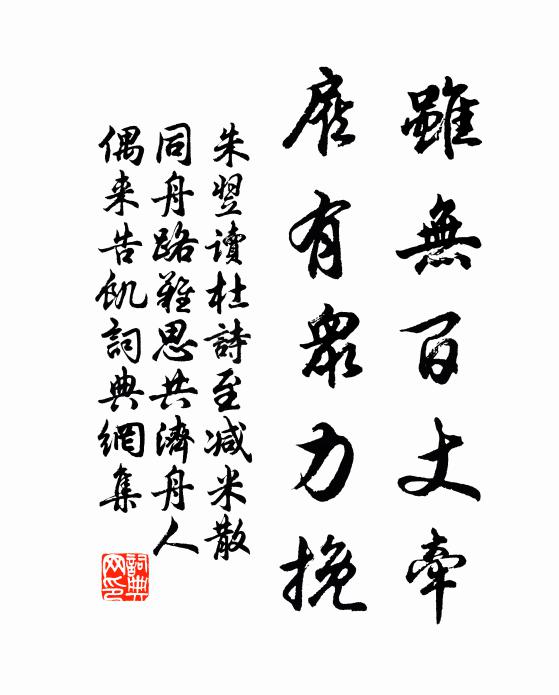 雖無百丈牽
庶有衆力挽
朱翌讀杜詩至减米散
同舟路難思共濟舟人
偶来告飢詞典網集
詞典
网印